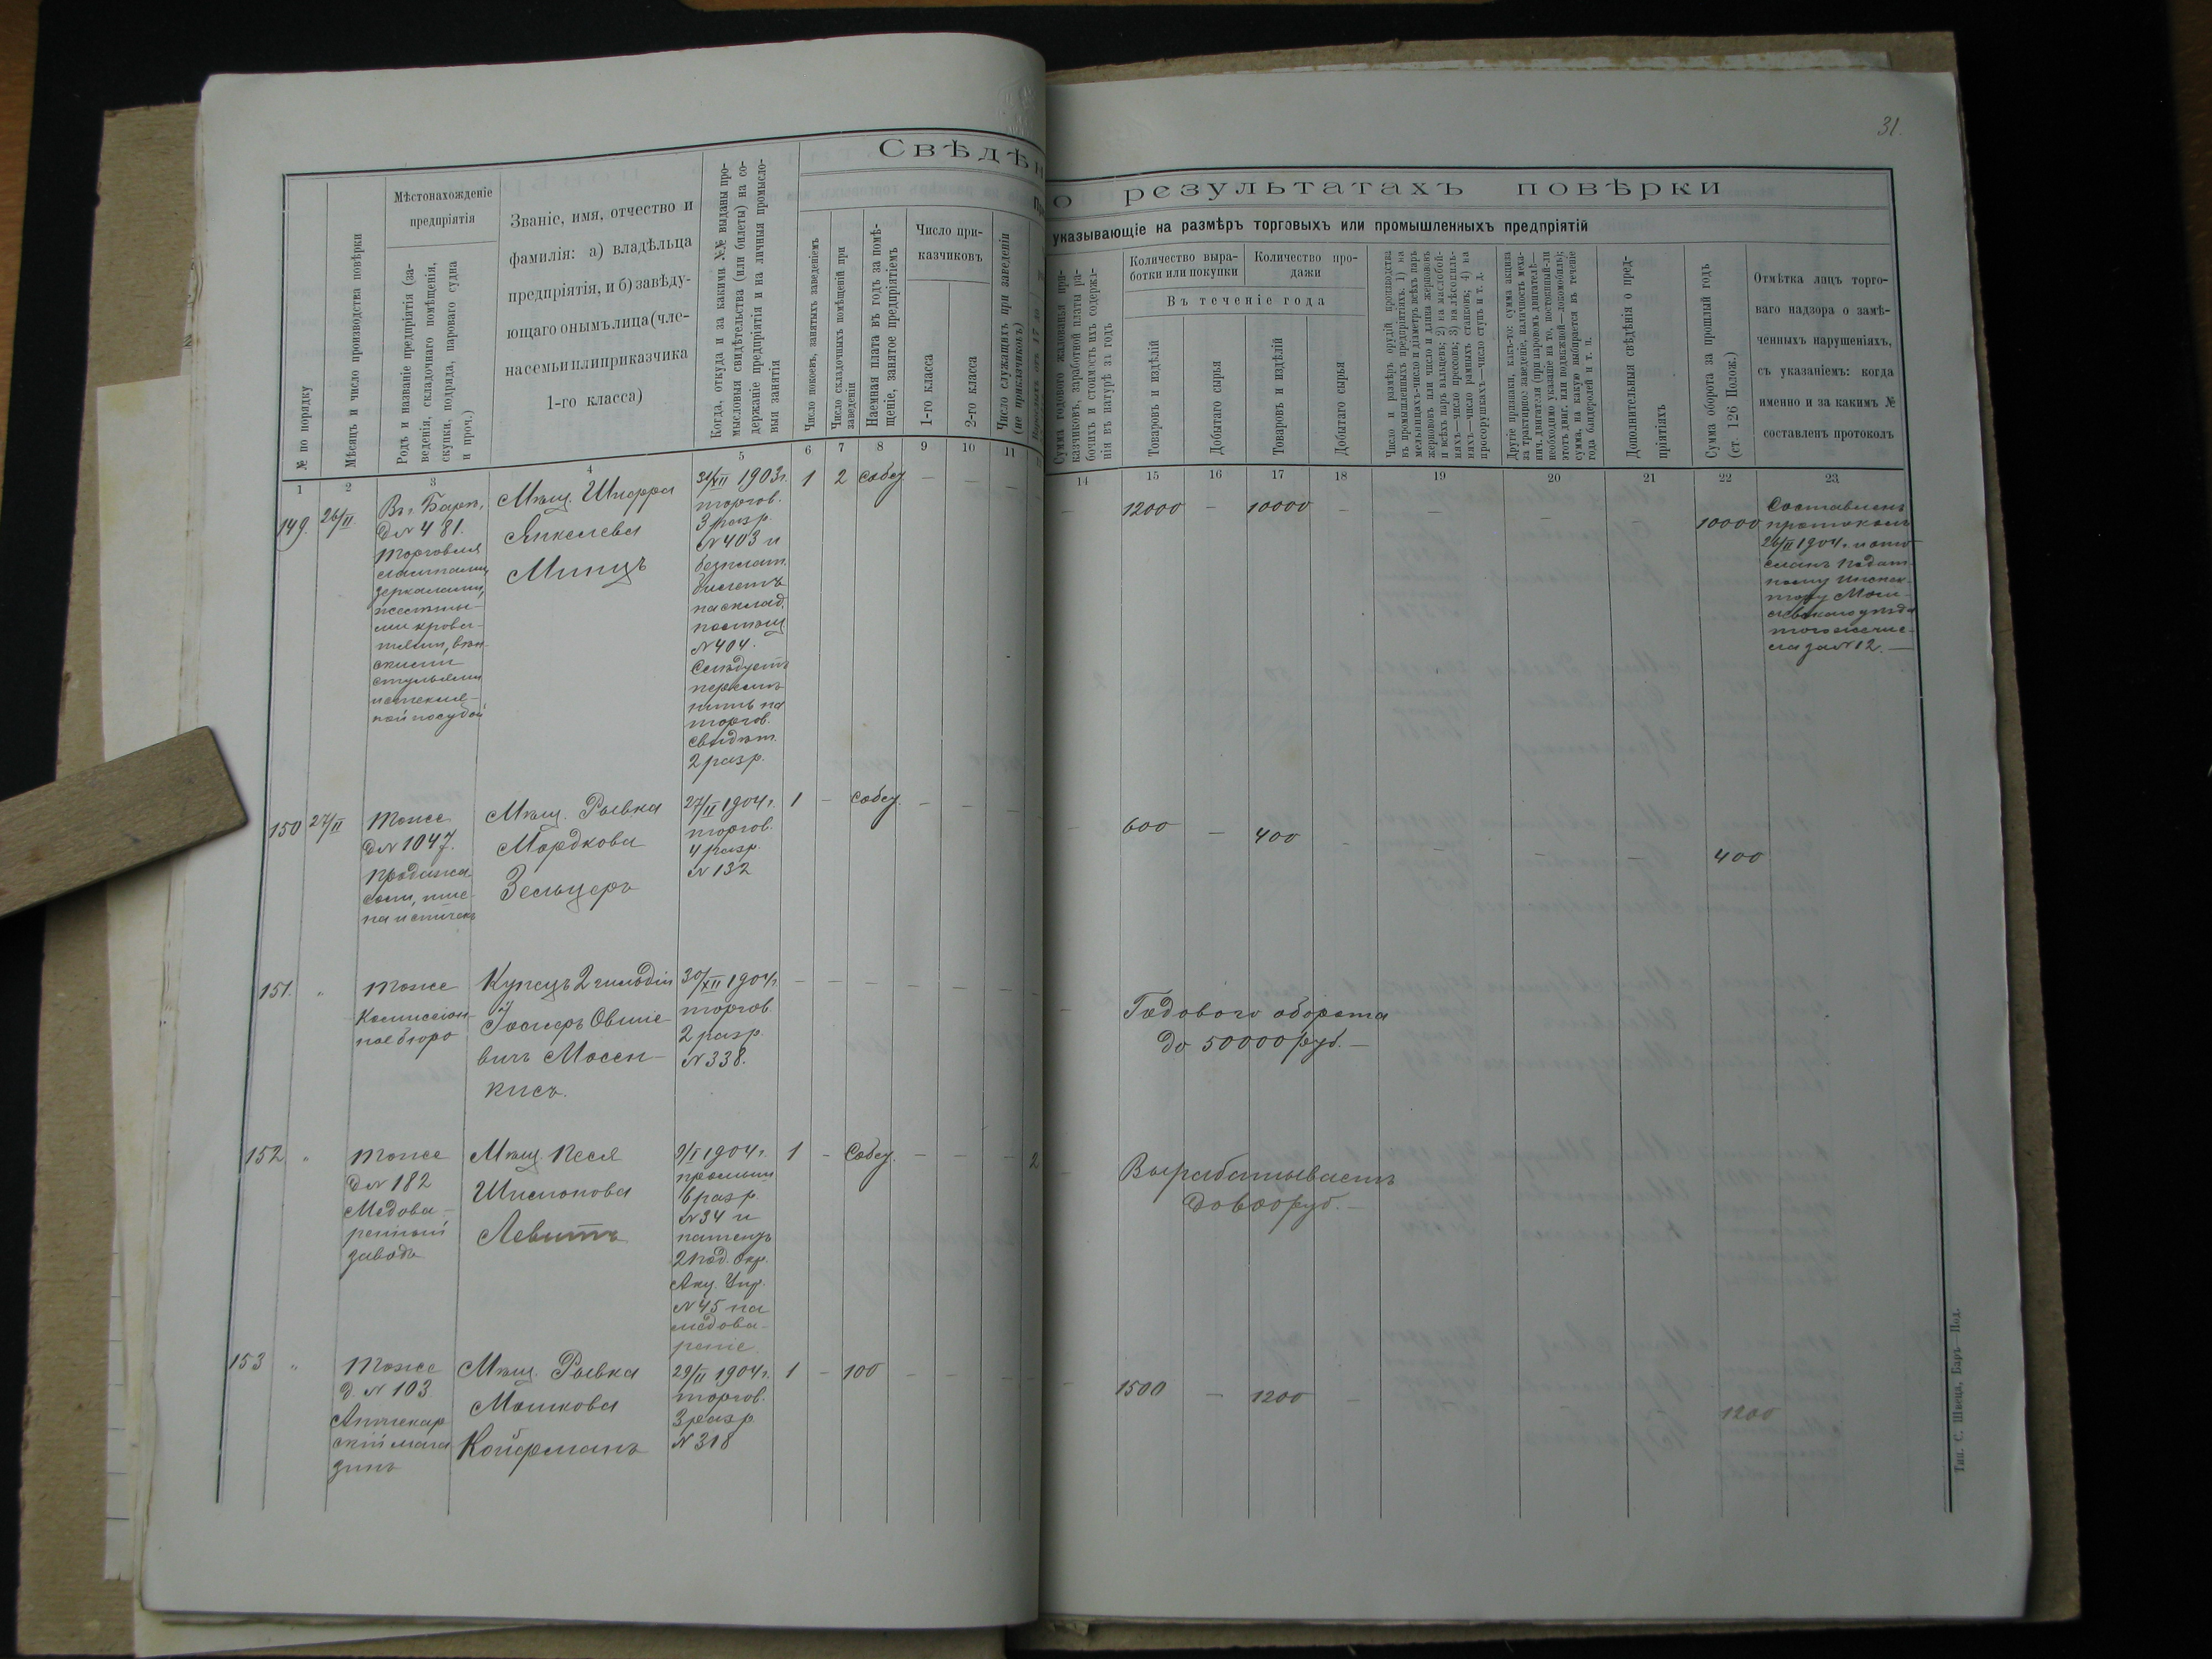 31.
Свѣдѣн
о результатахъ повѣрки
указывающіе на размѣръ торговыхъ или промышленныхъ предпріятій
№ по порядку
Мѣсяцъ и число производства повѣрки
Мѣстонахожденіе
предпріятія
Родъ и названіе предпріятія (за-
веденія, складочнаго помѣщенія,
скупки, подряда, пароваго судна
и проч.)
Званіе, имя, отчество и
фамилія: а) владѣльца
предпріятія, и б) завѣду-
ющаго онымъ лица (чле-
на семьи или приказчика
1-го класса)
Когда, откуда и за какими №№ выданы про-
мысловыя свидѣтельства (или билеты) на со-
держаніе предпріятія и на личныя промысло-
выя занятія
Число покоевъ, занятыхъ заведеніемъ
Число складочныхъ помѣщеній при
заведеніи
Наемная плата въ годъ за помѣ-
щеніе, занятое предпріятіемъ
Число при-
казчиковъ
1-го класса
2-го класса
Число служащихъ при заведеніи
(не приказчиковъ)
Сумма годового жалованья при-
казчиковъ, заработной платы ра-
бочихъ и стоимость ихъ содержа-
нія въ натурѣ за годъ
Количество выра-
ботки или покупки
Количество про-
дажи
Въ теченіе года
Товаровъ и издѣлій
Добытаго сырья
Товаровъ и издѣлій
Добытаго сырья
Число и размѣръ орудій производства
въ промышленныхъ предпріятіяхъ: 1) на
мельницахъ-число и діаметръ всѣхъ паръ
жернововъ или число и длина жернововъ
и всѣхъ паръ вальцевъ; 2) на маслобой-
няхъ—число прессовъ; 3) на лѣсопиль-
няхъ—число рамныхъ станковъ; 4) на
просорушкахъ—число ступъ и т. д.
Другіе признаки, какъ-то: сумма акциза
за трактирное заведеніе, наличность меха-
нич. двигателя (при паровомъ двигателѣ—
необходимо указаніе на то, постоянный-ли
этотъ двиг. или подвижной—локомобиль);
сумма, на какую выбирается въ теченіе
года бандеролей и т. п.
Дополнительныя свѣдѣнія о пред-
пріятіяхъ
Сумма оборота за прошлый годъ
(ст. 126 Полож.)
Отмѣтка лицъ торго-
ваго надзора о замѣ-
ченныхъ нарушеніяхъ,
съ указаніемъ: когда
именно и за какимъ №
составленъ протоколъ
1 2 3 4 5 6 7 8 9 10 11
14 15 16 17 18 19 20 21 22 23
149. 26/II
Въ г. Барѣ,
д № 481.
Торговля
лампами,
зеркалами,
жестяны-
ми крова-
тями, вѣн-
скими
стульями
и стеклян-
ной посудой
Мѣщ. Шпорра
Янкелева
Минцъ
31/XII 1903 г.
торгов.
3 разр.
№ 403 и
безплат.
билетъ
на склад.
помѣщ
№ 404.
Слѣдуетъ
перемѣ-
нить на
торгов.
свидѣт.
2 разр.
1 2 собст.
— 12000 — 10000 — — — — 10000
Составленъ
протоколъ
26/II 1904 г. и ото-
сланъ Подат-
ному Инспек-
тору Моги-
левскаго уѣзда
того же чис-
ла за № 12. —
150 27/II
Тоже
д № 1047.
Продажа
соли, пше-
на и спичекъ
Мѣщ. Рывка
Мордкова
Зельцеръ
27/II 1904 г.
торгов.
4 разр.
№ 132
1 — собст. — —
600 — 400 — — — — 400
151. "
Тоже
Комиссіон-
ное бюро
Купецъ 2 гильдіи
Іосифъ Овшіе-
вичъ Мосен-
кисъ.
30/XII 1904 г.
торгов.
2 разр.
№ 338.
Годового оборота
до 50000 руб. —
152 "
Тоже
д № 182
Медова-
ренный
заводъ
Мѣщ. Песя
Шимонова
Левитъ
9/I 1904 г.
промышл
6 разр.
№ 34 и
патентъ
2 под. окр.
Акц. Упр.
№ 45 на
медова-
реніе.
1 — Собст. — — — 2
Вырабатываетъ
до 600 руб. —
153 "
Тоже
д. № 103
Аптекар
скій мага
зинъ
Мѣщ. Рывка
Мошкова
Койфманъ
29/II 1904 г.
торгов.
3 разр
№ 318
1 — 100 — —
1500 — 1200 — 1200
Тип. С. Швеца, Баръ—Под.